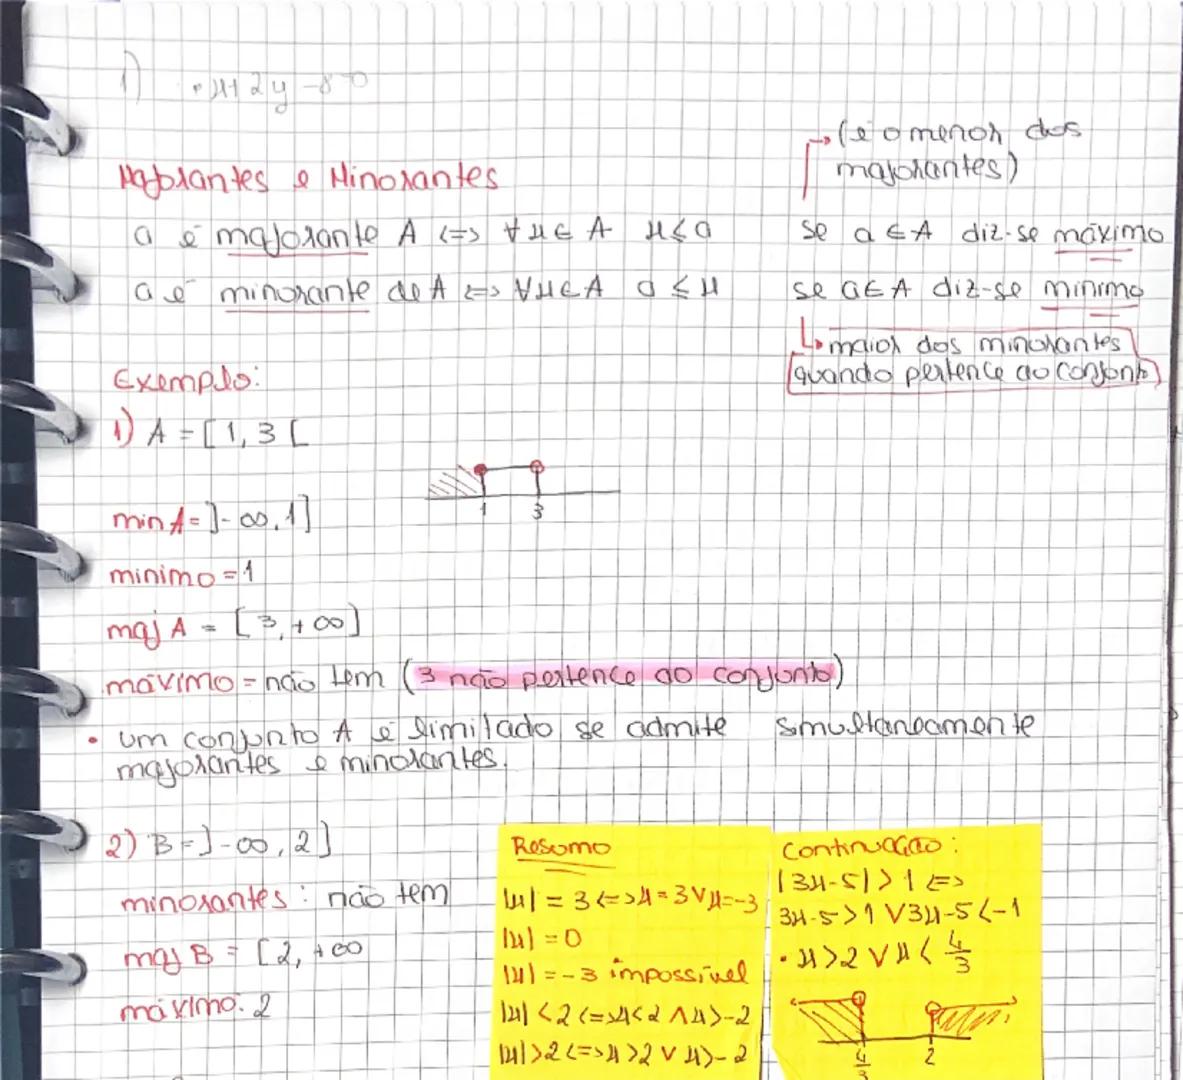 1) • x+2y-8=0
→ (é o menor dos
majorantes)
Majorantes e Minorantes
a é majorante A <=> ∀x∈A x≤a se a∈A diz-se máximo
a é minorante de A <=> ∀x∈A a≤x se a∈A diz-se mínimo
↳ maior dos minorantes
quando pertence ao conjunto
Exemplo:
1) A = [1, 3[
1 3
min A = ]-∞, 1]
minimo = 1
maj A = [3, +∞]
máximo = não tem (3 não pertence ao conjunto)
• um conjunto A é limitado se admite simultaneamente
majorantes e minorantes.
2) B = ]-∞, 2]
minorantes: não tem
maj B = [2, +∞
máximo: 2
Resumo
|x| = 3 <=> x = 3 ∨ x = -3
|x| = 0
|x| = -3 impossível
|x| < 2 <=> x < 2 ∧ x > -2
|x| > 2 <=> x > 2 ∨ x > -2
Continuação:
|3x-5| > 1 <=>
3x-5 > 1 ∨ 3x-5 < -1
• x > 2 ∨ x < 4/3
4/3 2